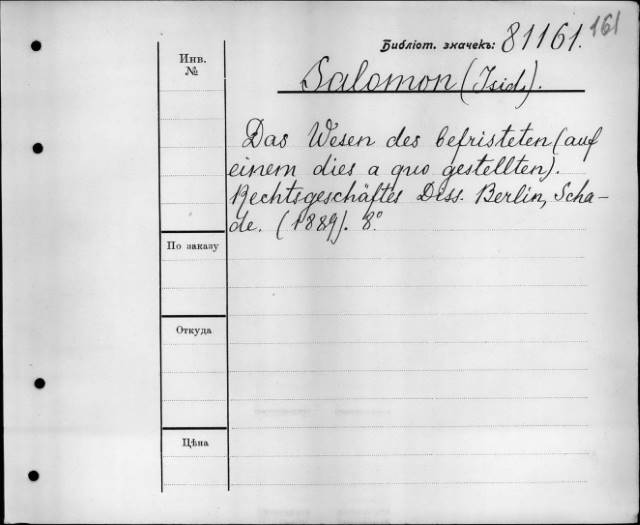 161
Библіот. значекъ: 81161.
Инв.
№
Salomon (Isid.).
Das Wesen des befristeten (auf
einem dies a quo gestellten).
Rechtsgeschäftes Diss. Berlin, Scha-
de. (1889). 8°.
По заказу
Откуда
Цѣна